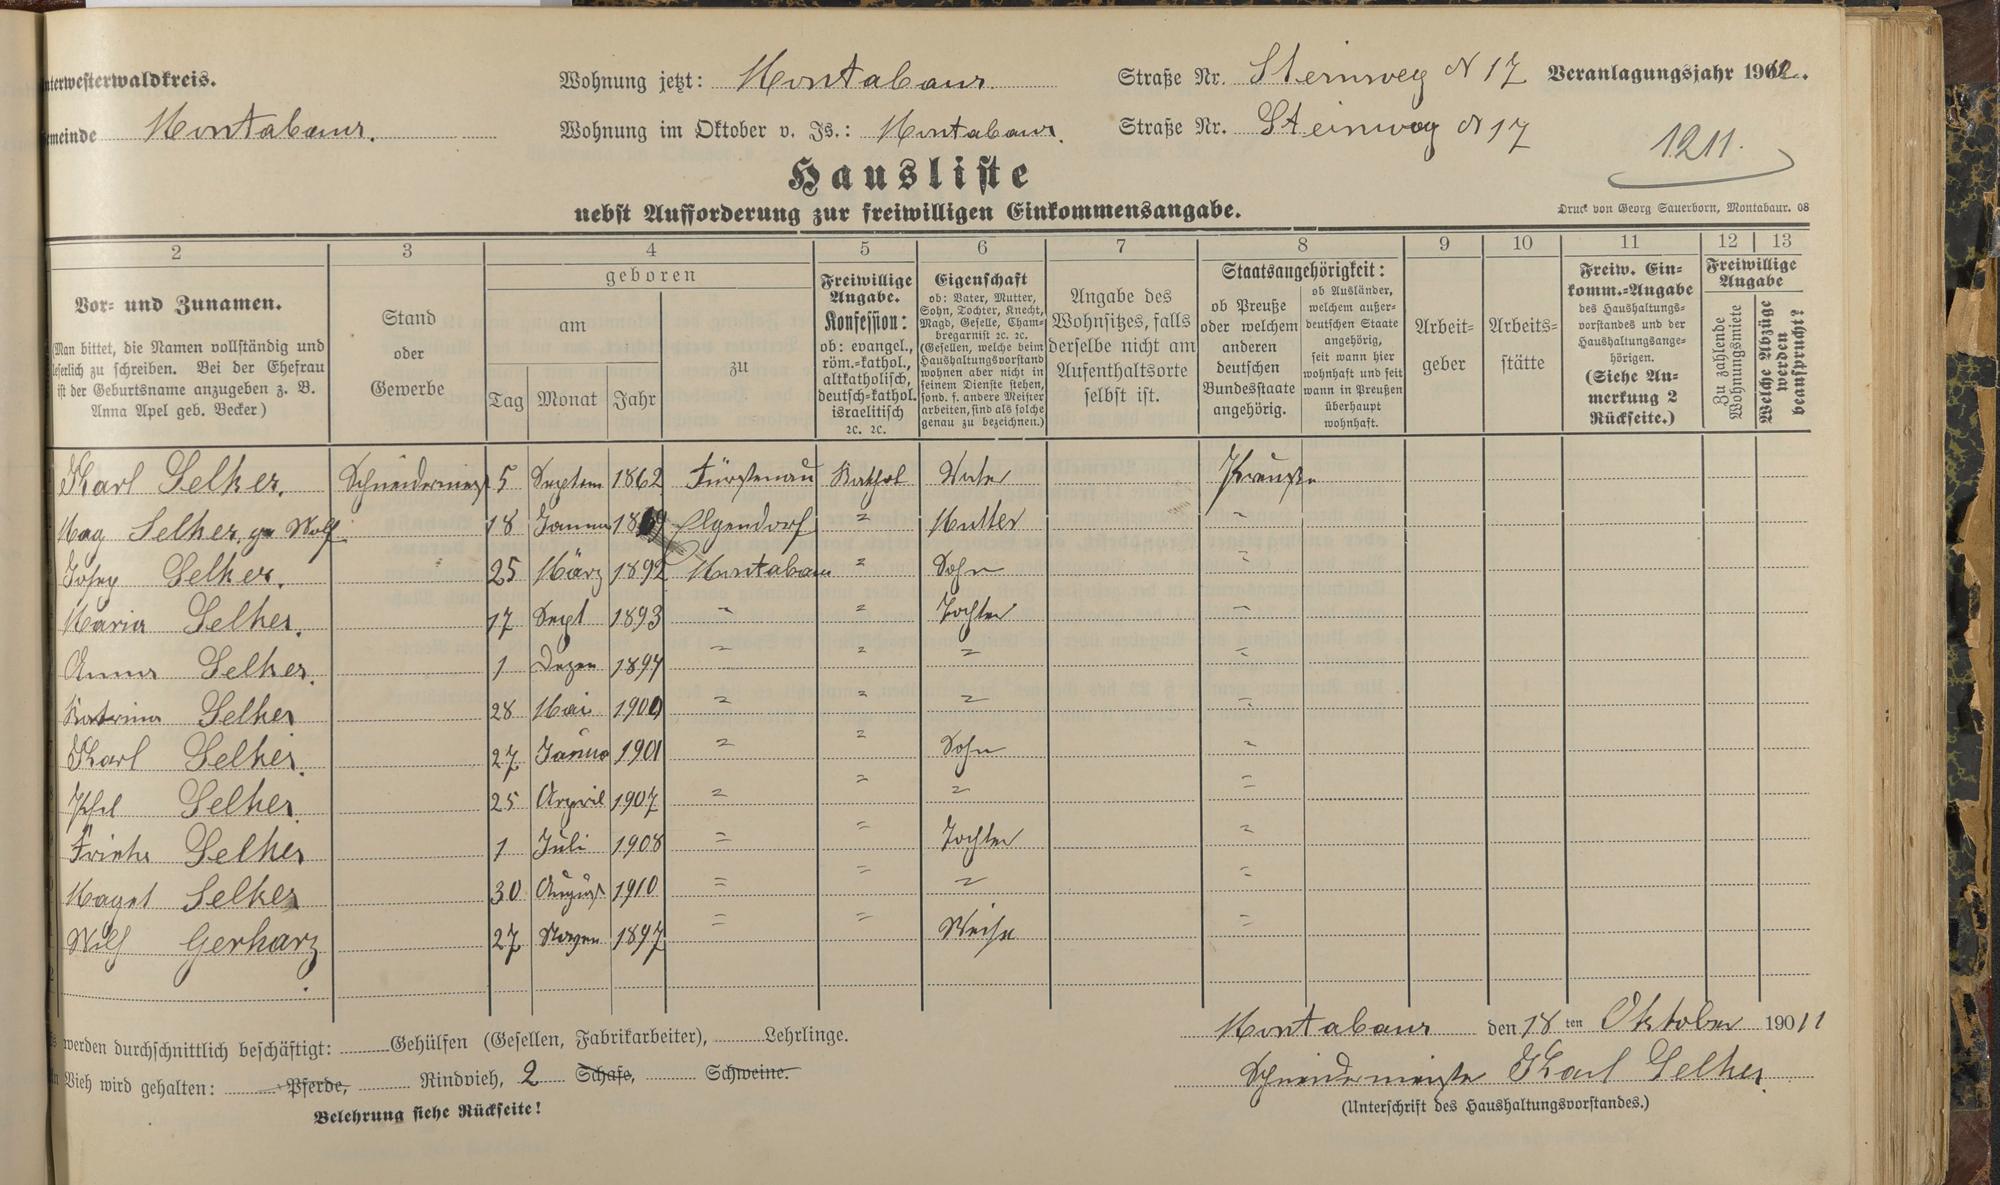 nterwesterwaldkreis. Wohnung jetzt: Montabaur. Straße Nr. Steinweg N 17 Veranlagungsjahr 1912.
emeinde Montabaur. Wohnung im Oktober v. Js.: Montabaur. Straße Nr. Steinweg N 17
1211.
Hausliste
nebst Aufforderung zur freiwilligen Einkommensangabe.
Druck von Georg Sauerborn, Montabaur. 08
2 3 4 5 6 7 8 9 10 11 12 13
Vor- und Zunamen.
(Man bittet, die Namen vollständig und
leserlich zu schreiben. Bei der Ehefrau
ist der Geburtsname anzugeben z. B.
Anna Apel geb. Becker)
Stand
oder
Gewerbe
geboren
am
Tag Monat Jahr
zu
Freiwillige
Angabe.
Konfession:
ob: evangel.,
röm.-kathol.,
altkatholisch,
deutsch-kathol.
israelitisch
ꝛc. ꝛc.
Eigenschaft
ob: Vater, Mutter,
Sohn, Tochter, Knecht,
Magd, Geselle, Cham-
bregarnist ꝛc. ꝛc.
(Gesellen, welche beim
Haushaltungsvorstand
wohnen aber nicht in
seinem Dienste stehen,
sond. f. andere Meister
arbeiten, sind als solche
genau zu bezeichnen.)
Angabe des
Wohnsitzes, falls
derselbe nicht am
Aufenthaltsorte
selbst ist.
Staatsangehörigkeit:
ob Preuße
oder welchem
anderen
deutschen
Bundesstaate
angehörig.
ob Ausländer,
welchem außer-
deutschen Staate
angehörig,
seit wann hier
wohnhaft und seit
wann in Preußen
überhaupt
wohnhaft.
Arbeit-
geber
Arbeits-
stätte
Freiw. Ein-
komm.-Angabe
des Haushaltungs-
vorstandes und der
Haushaltungsange-
hörigen.
(Siehe An-
merkung 2
Rückseite.)
Freiwillige
Angabe
Zu zahlende
Wohnungsmiete
Welche Abzüge
werden
beansprucht?
Karl Selker. Schneidermeist 5 Septem 1862 Fürstenau Kathol Vater Preuße
Mag Selker, ge Wolf 18 Januar 1869 Elgendorf " Mutter "
Josep Selker. 25 März 1892 Montabaur " Sohn "
Maria Selker. 17 Sept 1893 " " Tochter "
Anna Selker. 1 Dezem 1897 " " " "
Katrina Selker 28 Mai 1900 " " " "
Karl Selker. 27 Janua 1901 " " Sohn "
Selker. 25 Arpril 1907 " " " "
Selker 1 Juli 1908 " " Tochter "
Maget Selker 30 August 1910 " " " "
Wilh Gerharz. 27 Novem 1897 " " "
werden durchschnittlich beschäftigt: Gehülfen (Gesellen, Fabrikarbeiter), Lehrlinge.
Vieh wird gehalten: Pferde, Rindvieh, 2 Schafe, Schweine.
Belehrung siehe Rückseite!
Montabaur den 18 ten Oktober 1911
Schneidermeister Karl Selker.
(Unterschrift des Haushaltungsvorstandes.)